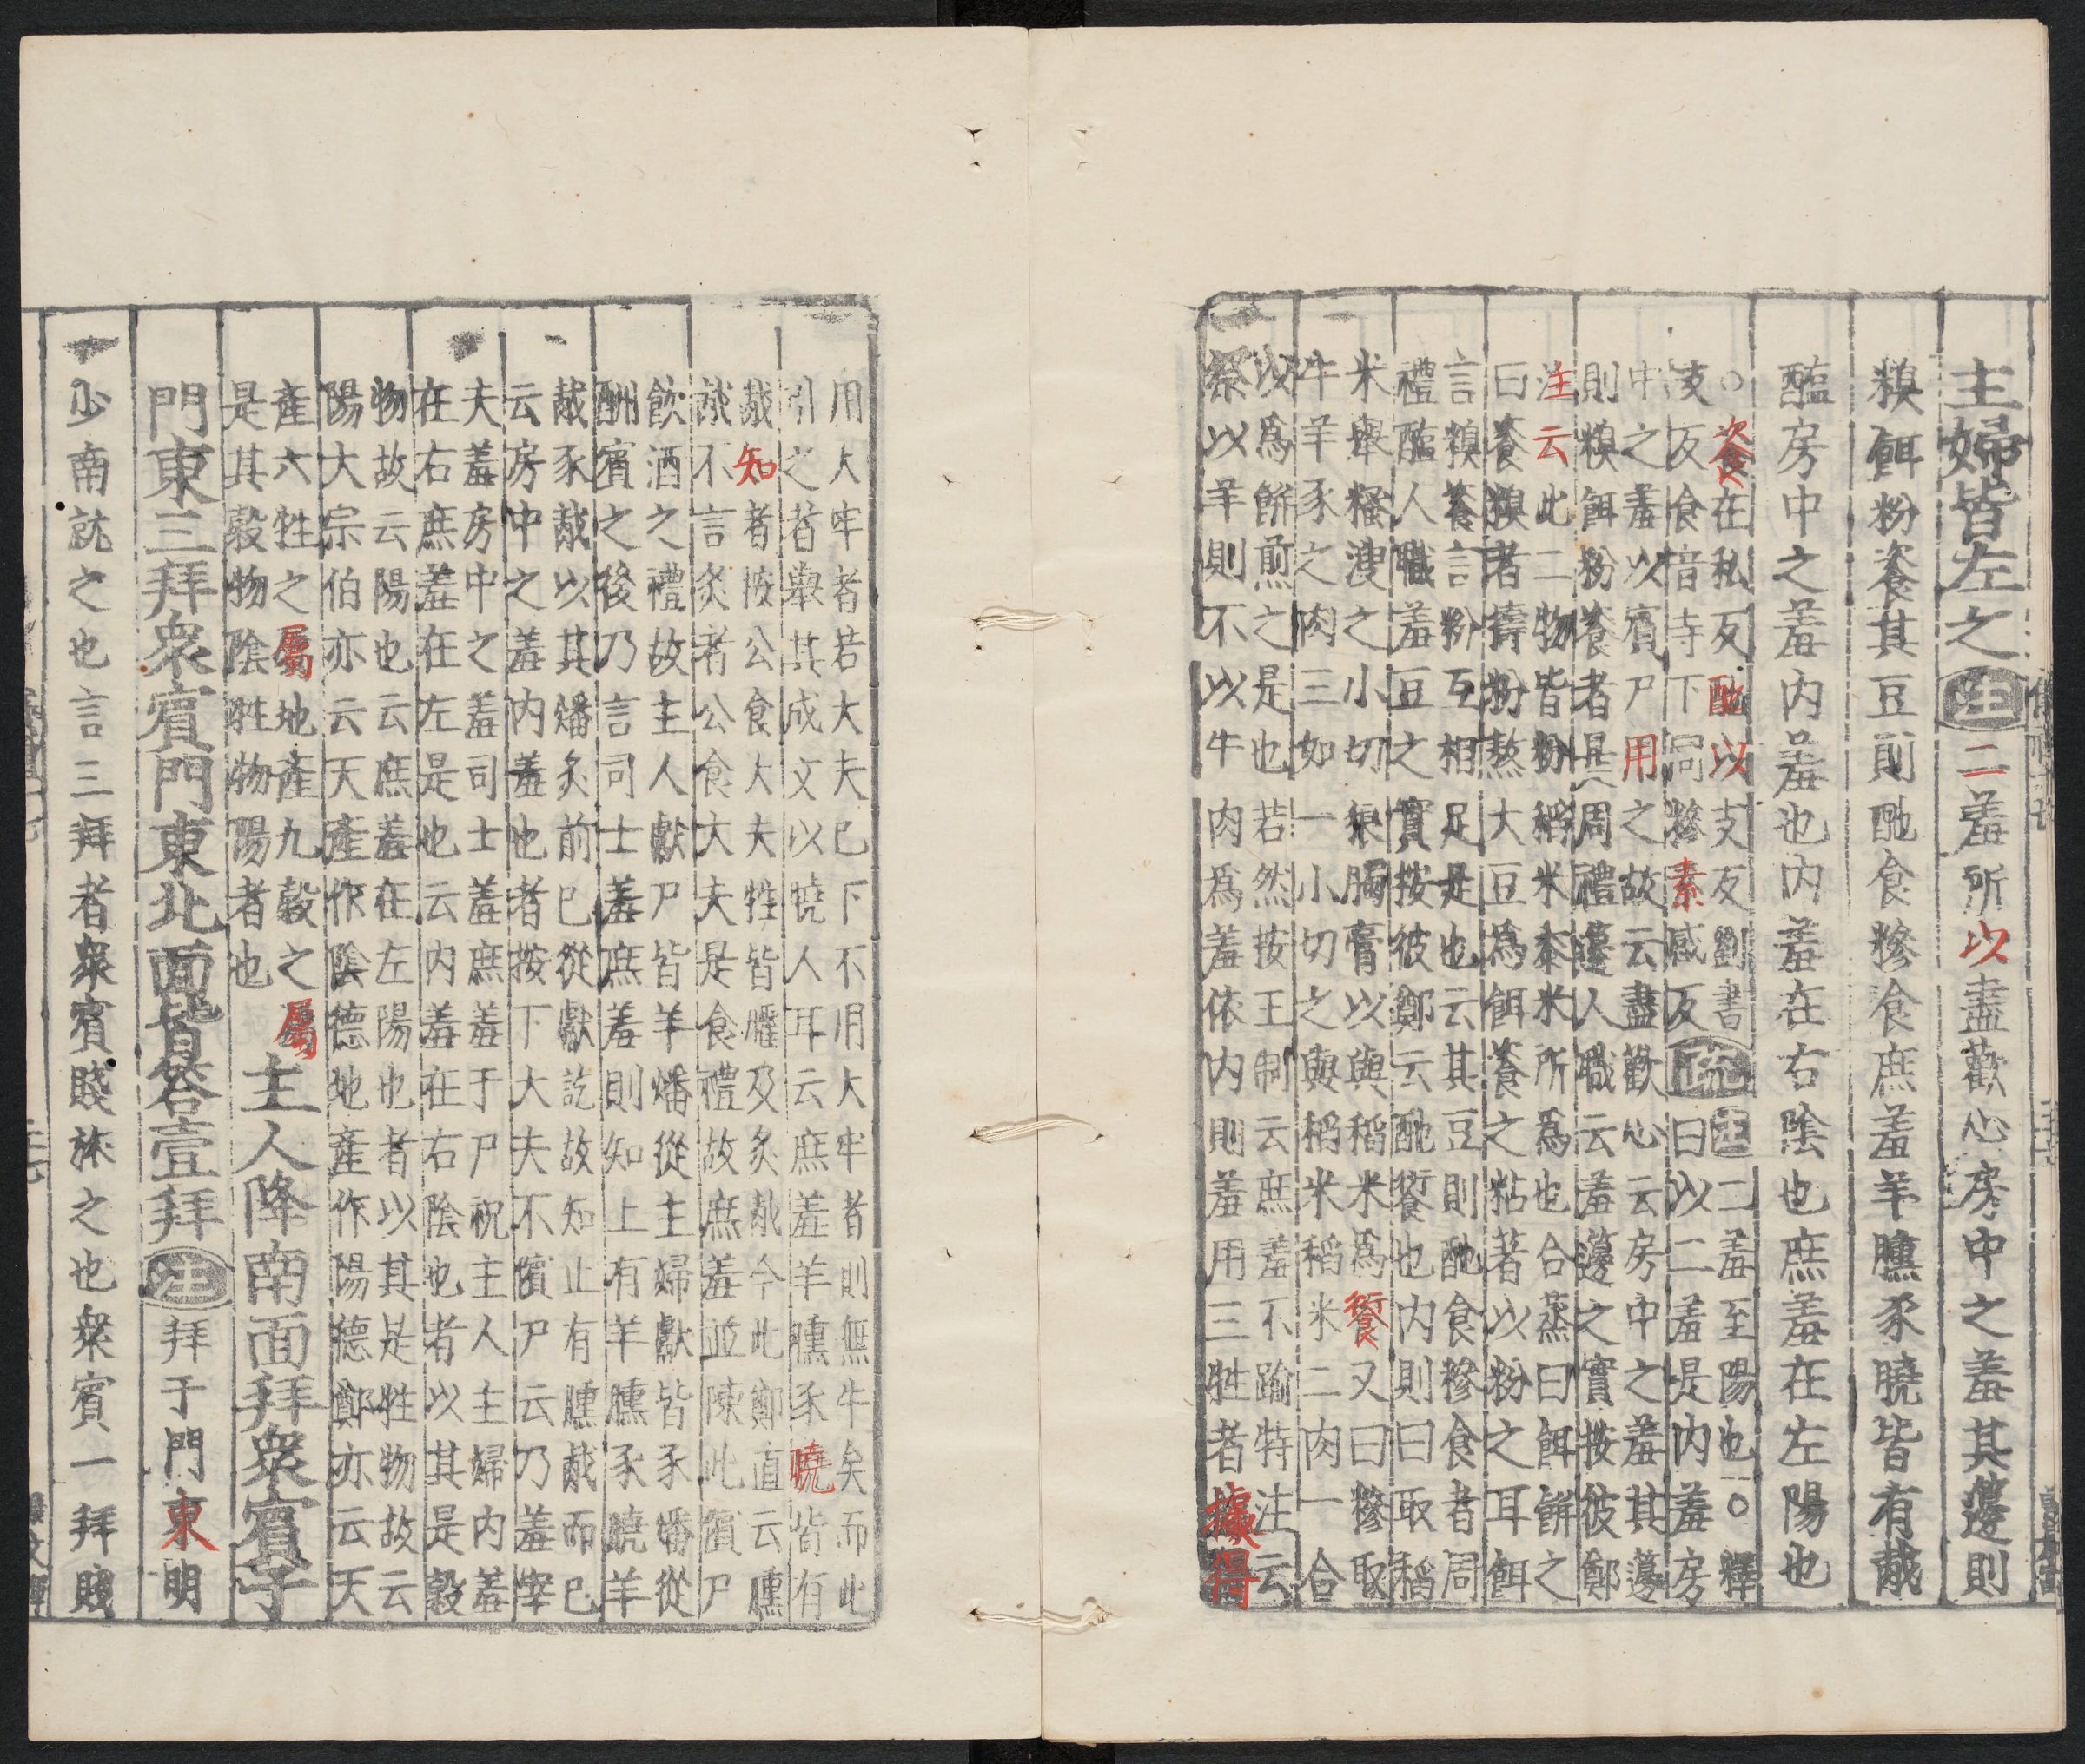 主婦皆左之注二羞所以盡歡心房中之羞其籩則
糗餌粉餈其豆則酏食糝食庶羞羊臐豕膮皆有胾
醢房中之羞内羞也内羞在右陰也庶羞在左陽也
○餈在私反酏以支反劉書
支反食音寺下同糝素感反疏曰以二羞是内羞房
注二羞至陽也○釋
中之羞以賓尸用之故云盡歡心云房中之羞其籩
則糗餌粉餈者是周禮籩人職云羞籩之實按彼鄭
注云此二物皆粉稻米黍米所為也合蒸曰餌餅之
曰餈糗者擣粉熬大豆為餌餈之粘著以粉之耳餌
言糗餈言粉互相足是也云其豆則酏食糝食者周
禮醢人職羞豆之實按彼鄭云酏餰也内則曰取稻
米舉糔溲之小切狼臅膏以與稻米為餰又曰糝取
牛羊豕之肉三如一小切之與稻米稻米二肉一合
以為餅煎之是也若然按王制云庶羞不踰特注云
祭以羊則不以牛肉為羞依内則羞用三牲者據得
用大牢者若大夫已下不用大牢者則無牛矣而此
引之者舉其成文以曉人耳云庶羞羊臐豕膮皆有
胾知者按公食大夫牲皆臛及炙胾今此鄭直云臐
胾不言炙者公食大夫是食禮故庶羞並陳此儐尸
飲酒之禮故主人獻尸皆羊燔從主婦獻皆豕燔從
酬賓之後乃言司士羞庶羞則知上有羊臐豕膮羊
胾豕胾以其燔炙前已從獻訖故知止有臐胾而已
云房中之羞内羞也者按下大夫不儐尸云乃羞宰
夫羞房中之羞司士羞庶羞于尸祝主人主婦内羞
在右庶羞在左是也云内羞在右陰也者以其是穀
物故云陽也云庶羞在左陽也者以其是牲物故云
陽大宗伯亦云天產作陰德地產作陽德鄭亦云天
產六牲之屬地產九穀之屬
是其穀物陰牲物陽者也
主人降南面拜衆賓于
門東三拜衆賓門東北面皆荅壹拜注拜于門東明
少南就之也言三拜者衆賓賤旅之也衆賓一拜賤